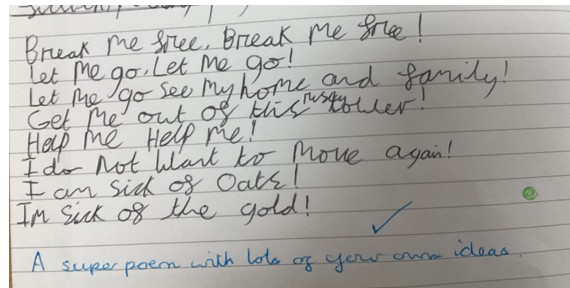 Break me free. Break me free!
Let me go. Let me go!
Let me go see my home and family!
Get me out of this rusty tower!
Help me Help me!
I do not want to move again!
I am sick of Oats!
Im sick of the gold!
A super poem with lots of your own ideas.